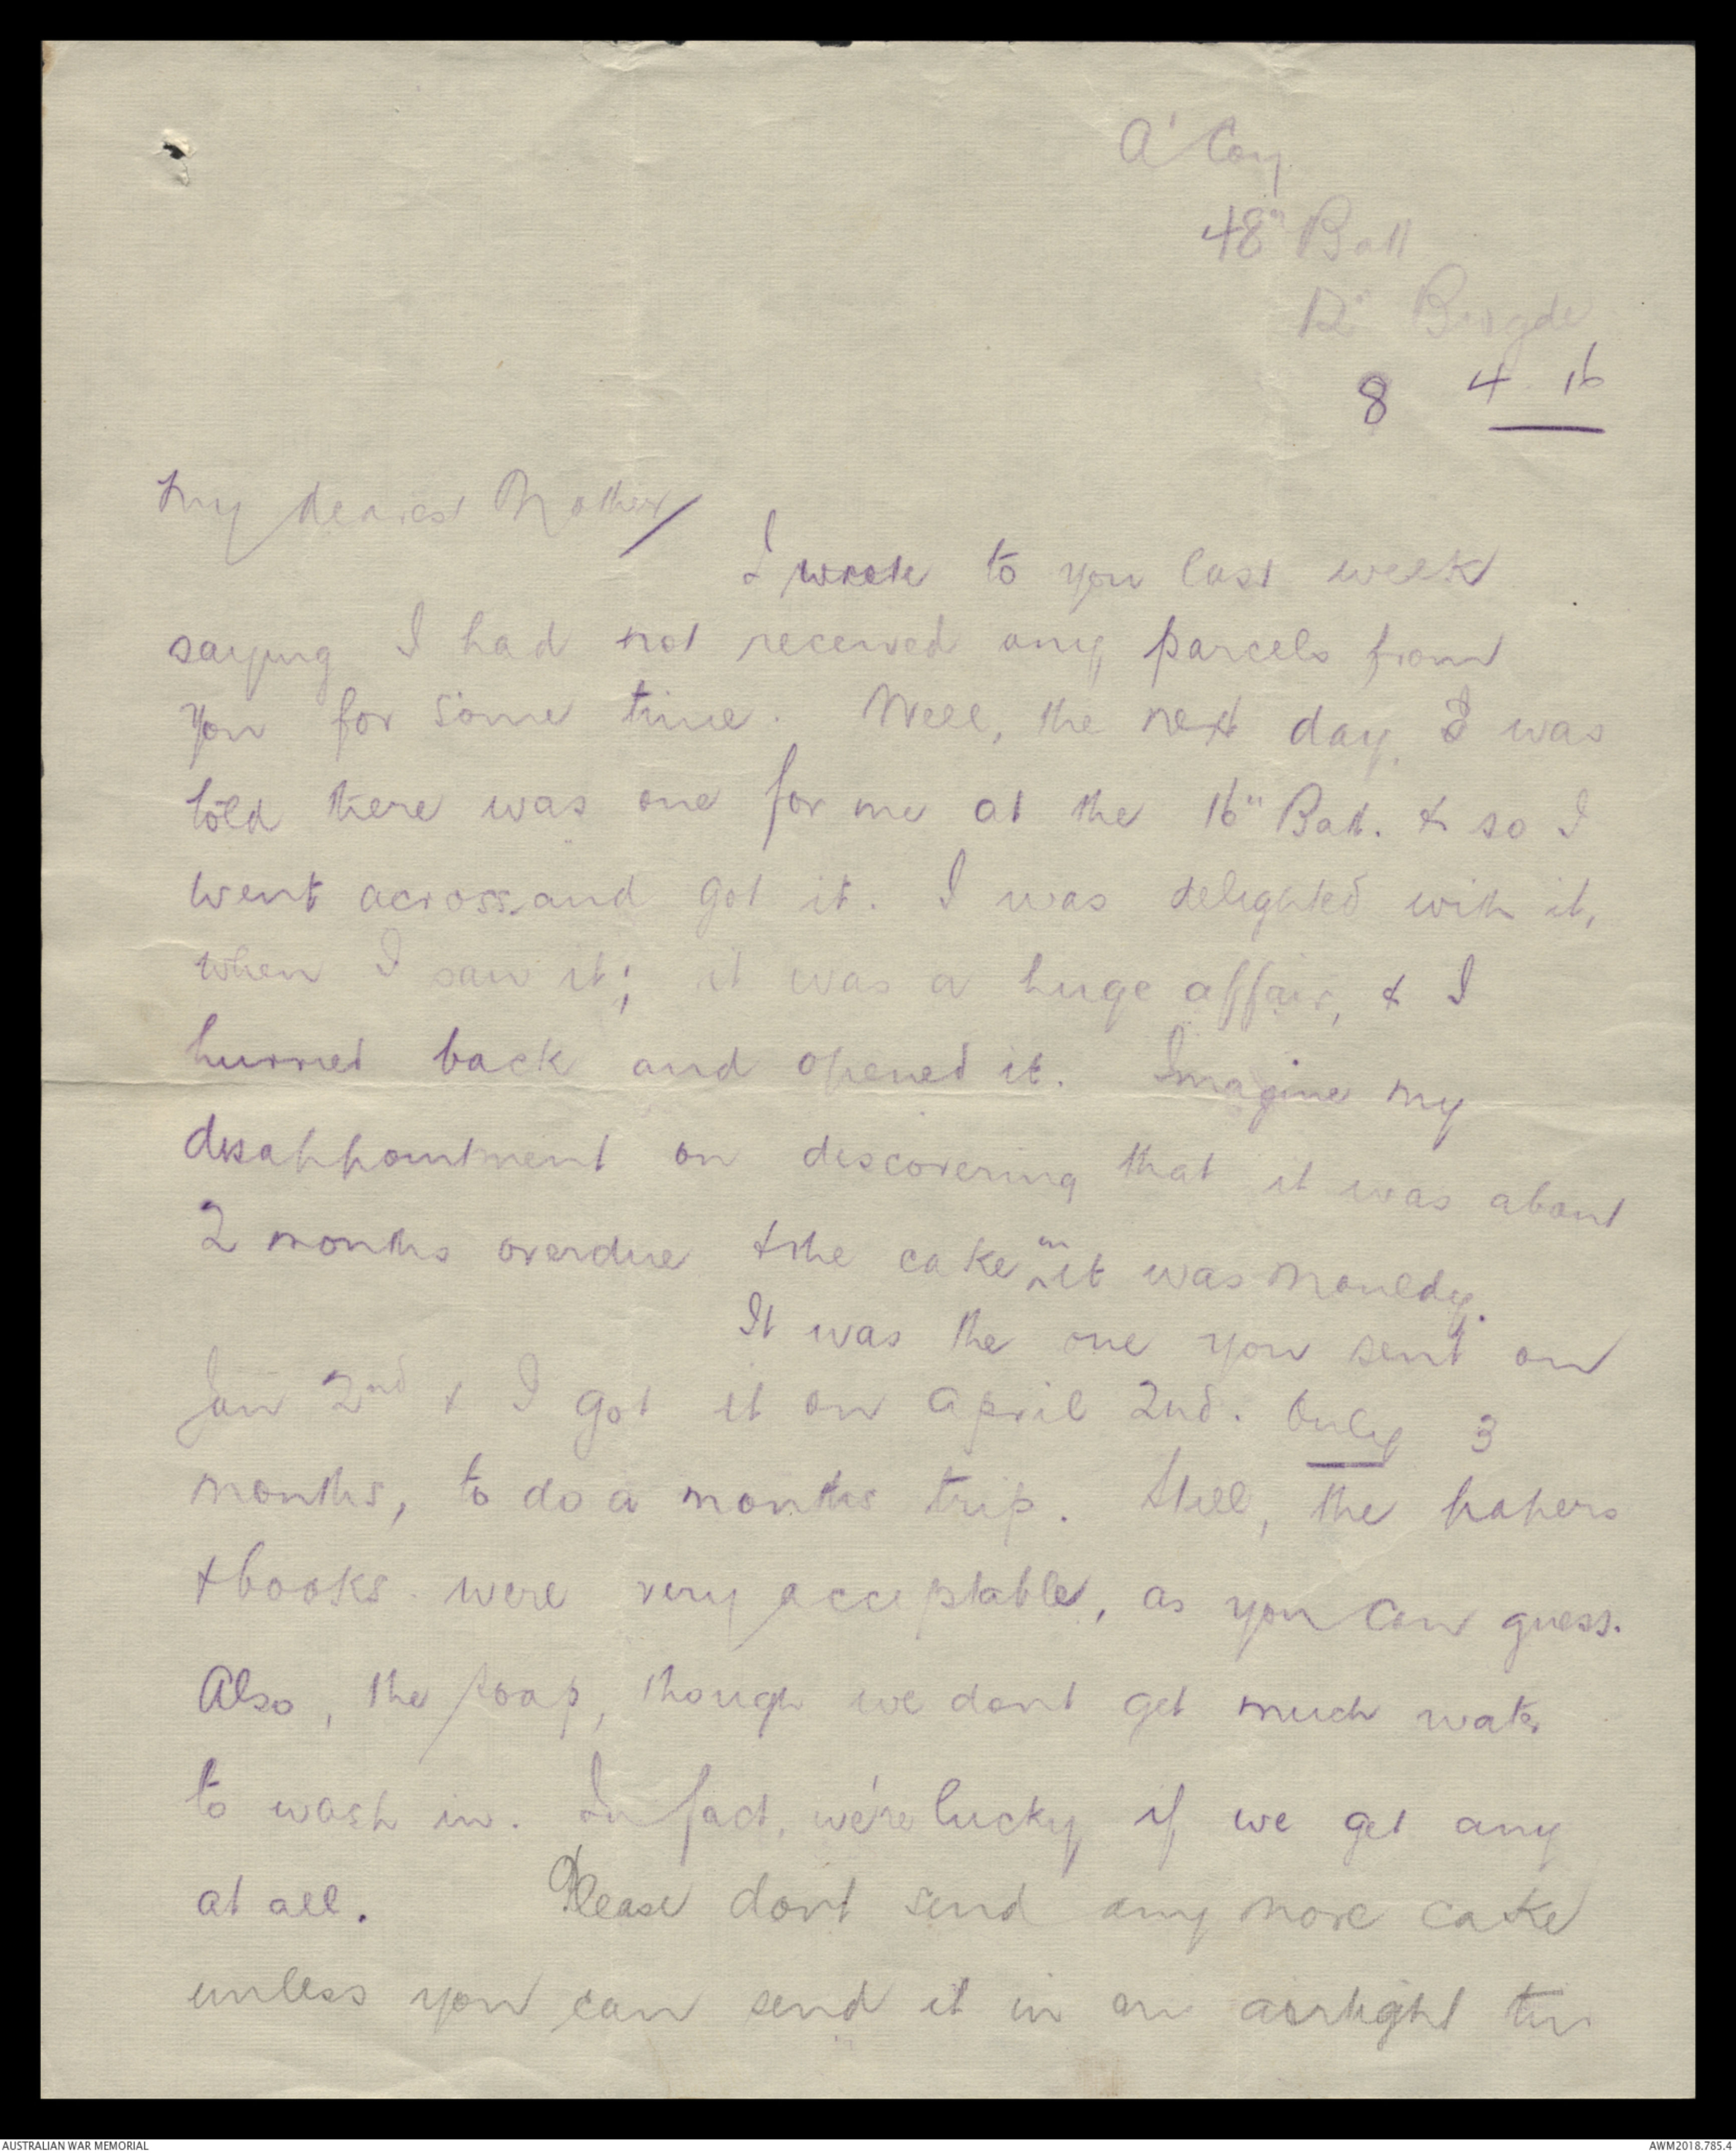 A' Coy
48th Batt
12th Brigde
8 4 16
My dearest Mother/
I wrote to you last week
saying I had not received any parcels from
you for some time. Well, the next day, I was
told there was one for me at the 16th Batt. & so I
went across and got it. I was delighted with it,
when I saw it; it was a huge affair, & I
hurried back and opened it. Imagine my
disappointment on discovering that it was about
2 months overdue & the cake in it was mouldy.
It was the one you sent on
Jan 2nd & I got it on April 2nd. Only 3
months, to do a months trip. Still, the papers
& books were very acceptable, as you can guess.
Also, the soap, though we dont get much water
to wash in. In fact, we're lucky if we get any
at all. Please dont send any more cake
unless you can send it in an airtight tin
AUSTRALIAN WAR MEMORIAL
AWM2018.785.4